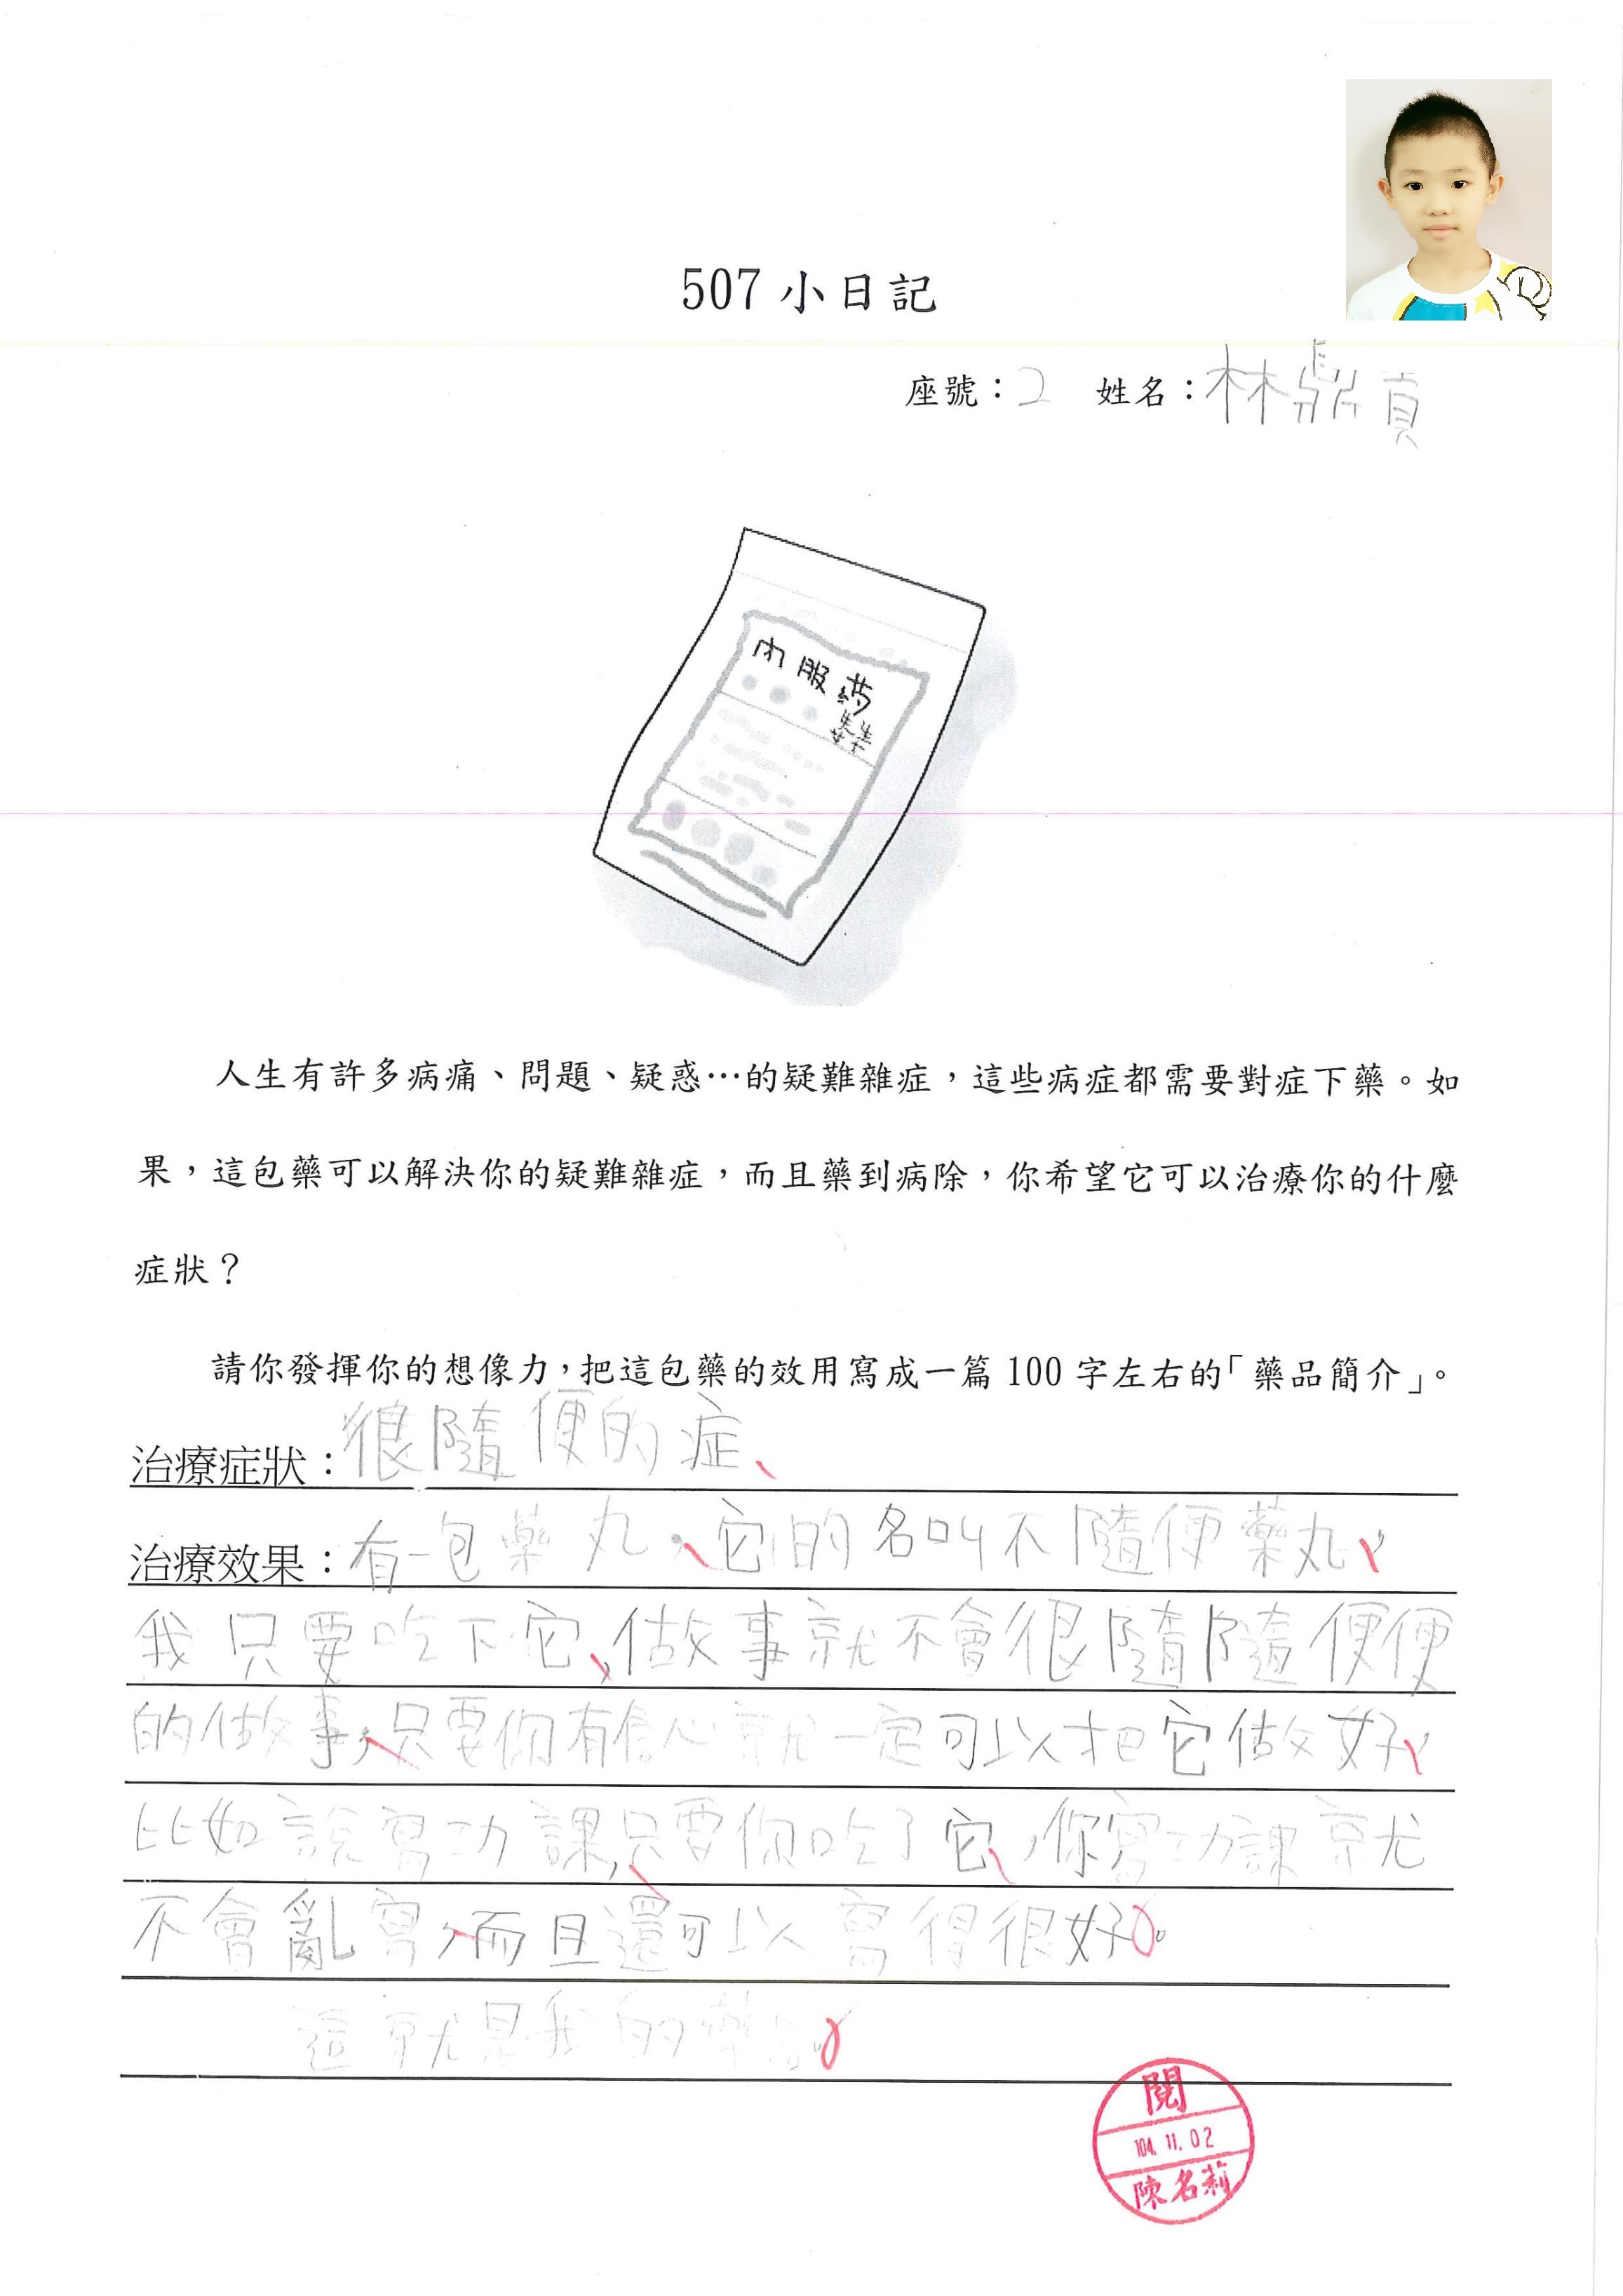 507 小日記
座號：2 姓名：林鼎貞
內服藥
人生有許多病痛、問題、疑惑…的疑難雜症，這些病症都需要對症下藥。如
果，這包藥可以解決你的疑難雜症，而且藥到病除，你希望它可以治療你的什麼
症狀？
請你發揮你的想像力，把這包藥的效用寫成一篇 100 字左右的「藥品簡介」。
治療症狀：很隨便的症、
治療效果：有一包藥丸，它的名叫不隨便藥丸，
我只要吃下它，做事就不會很隨隨便便
的做事，只要你有信心就一定可以把它做好，
比如說寫功課，只要你吃了它，你寫功課就
不會亂寫，而且還可以寫得很好。
這就是我的藥
閱
104.11.02
陳名莉